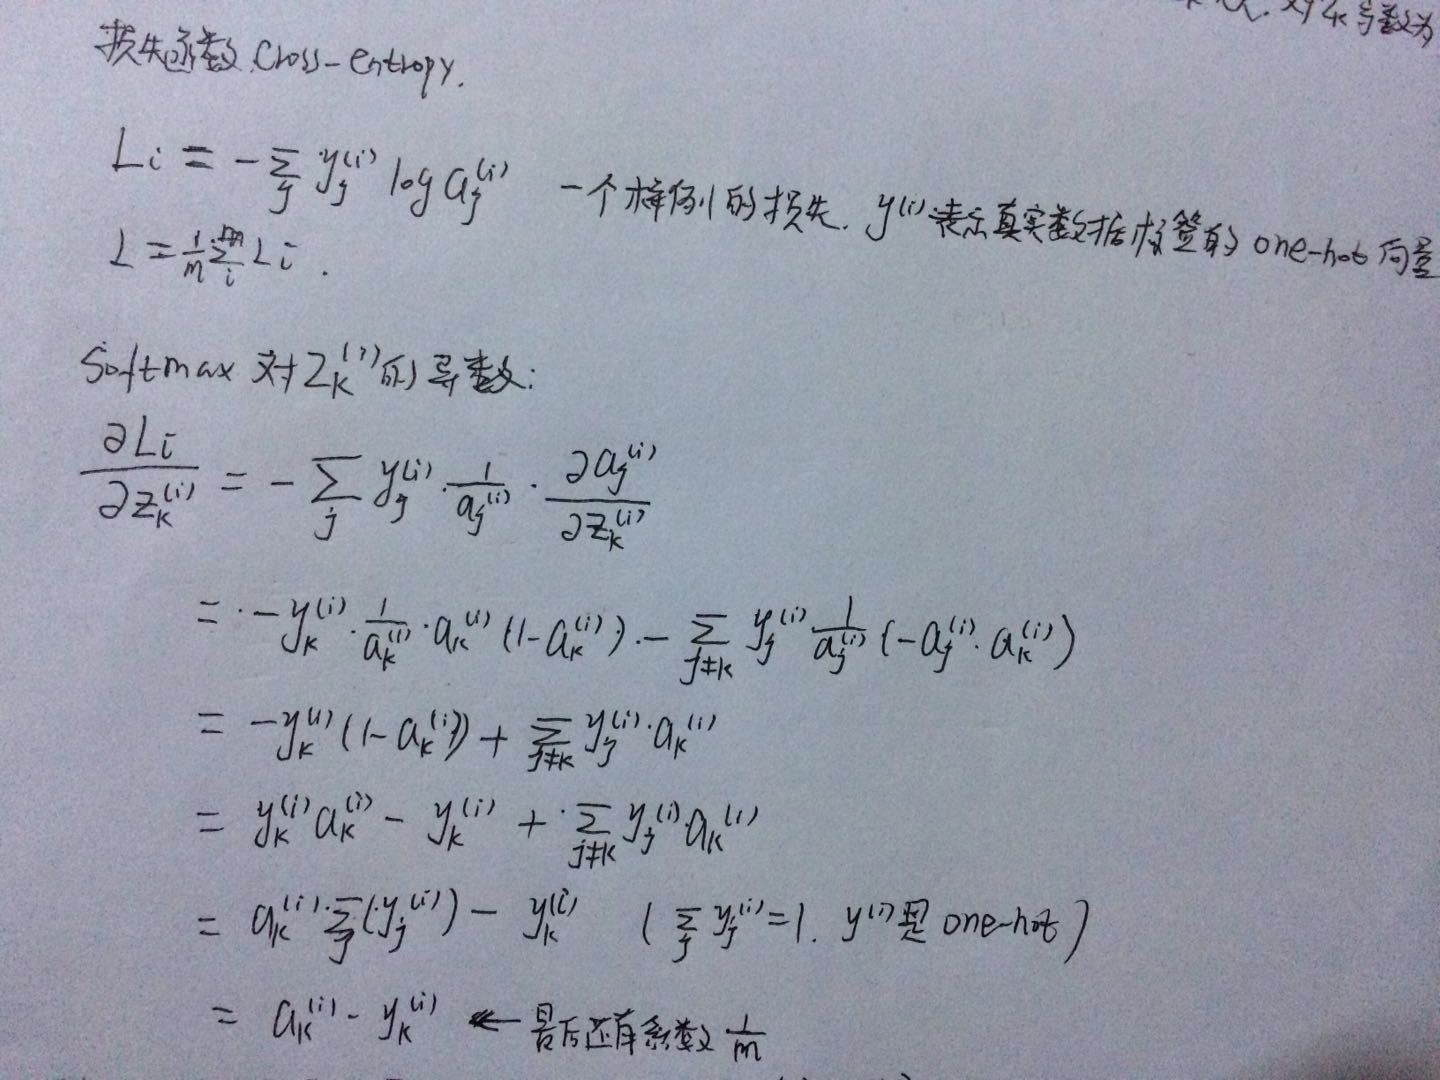 对 Zₖ 导数为
损失函数 Cross-entropy.
Lᵢ = -∑_j y_j^(i) log a_j^(i) 一个样例的损失. y^(i) 表示真实数据标签的 one-hot 向量
L = 1/m ∑_i^m Lᵢ.
Softmax 对 Z_k^(i) 的导数:
∂Lᵢ/∂z_k^(i) = -∑_j y_j^(i) · 1/a_j^(i) · ∂a_j^(i)/∂z_k^(i)
= -y_k^(i) · 1/a_k^(i) · a_k^(i) (1-a_k^(i)) - ∑_{j≠k} y_j^(i) 1/a_j^(i) (-a_j^(i) · a_k^(i))
= -y_k^(i) (1-a_k^(i)) + ∑_{j≠k} y_j^(i) · a_k^(i)
= y_k^(i) a_k^(i) - y_k^(i) + ∑_{j≠k} y_j^(i) · a_k^(i)
= a_k^(i) · ∑_j (y_j^(i)) - y_k^(i) (∑_j y_j^(i) = 1. y^(i) 是 one-hot)
= a_k^(i) - y_k^(i) ← 最后还有系数 1/m